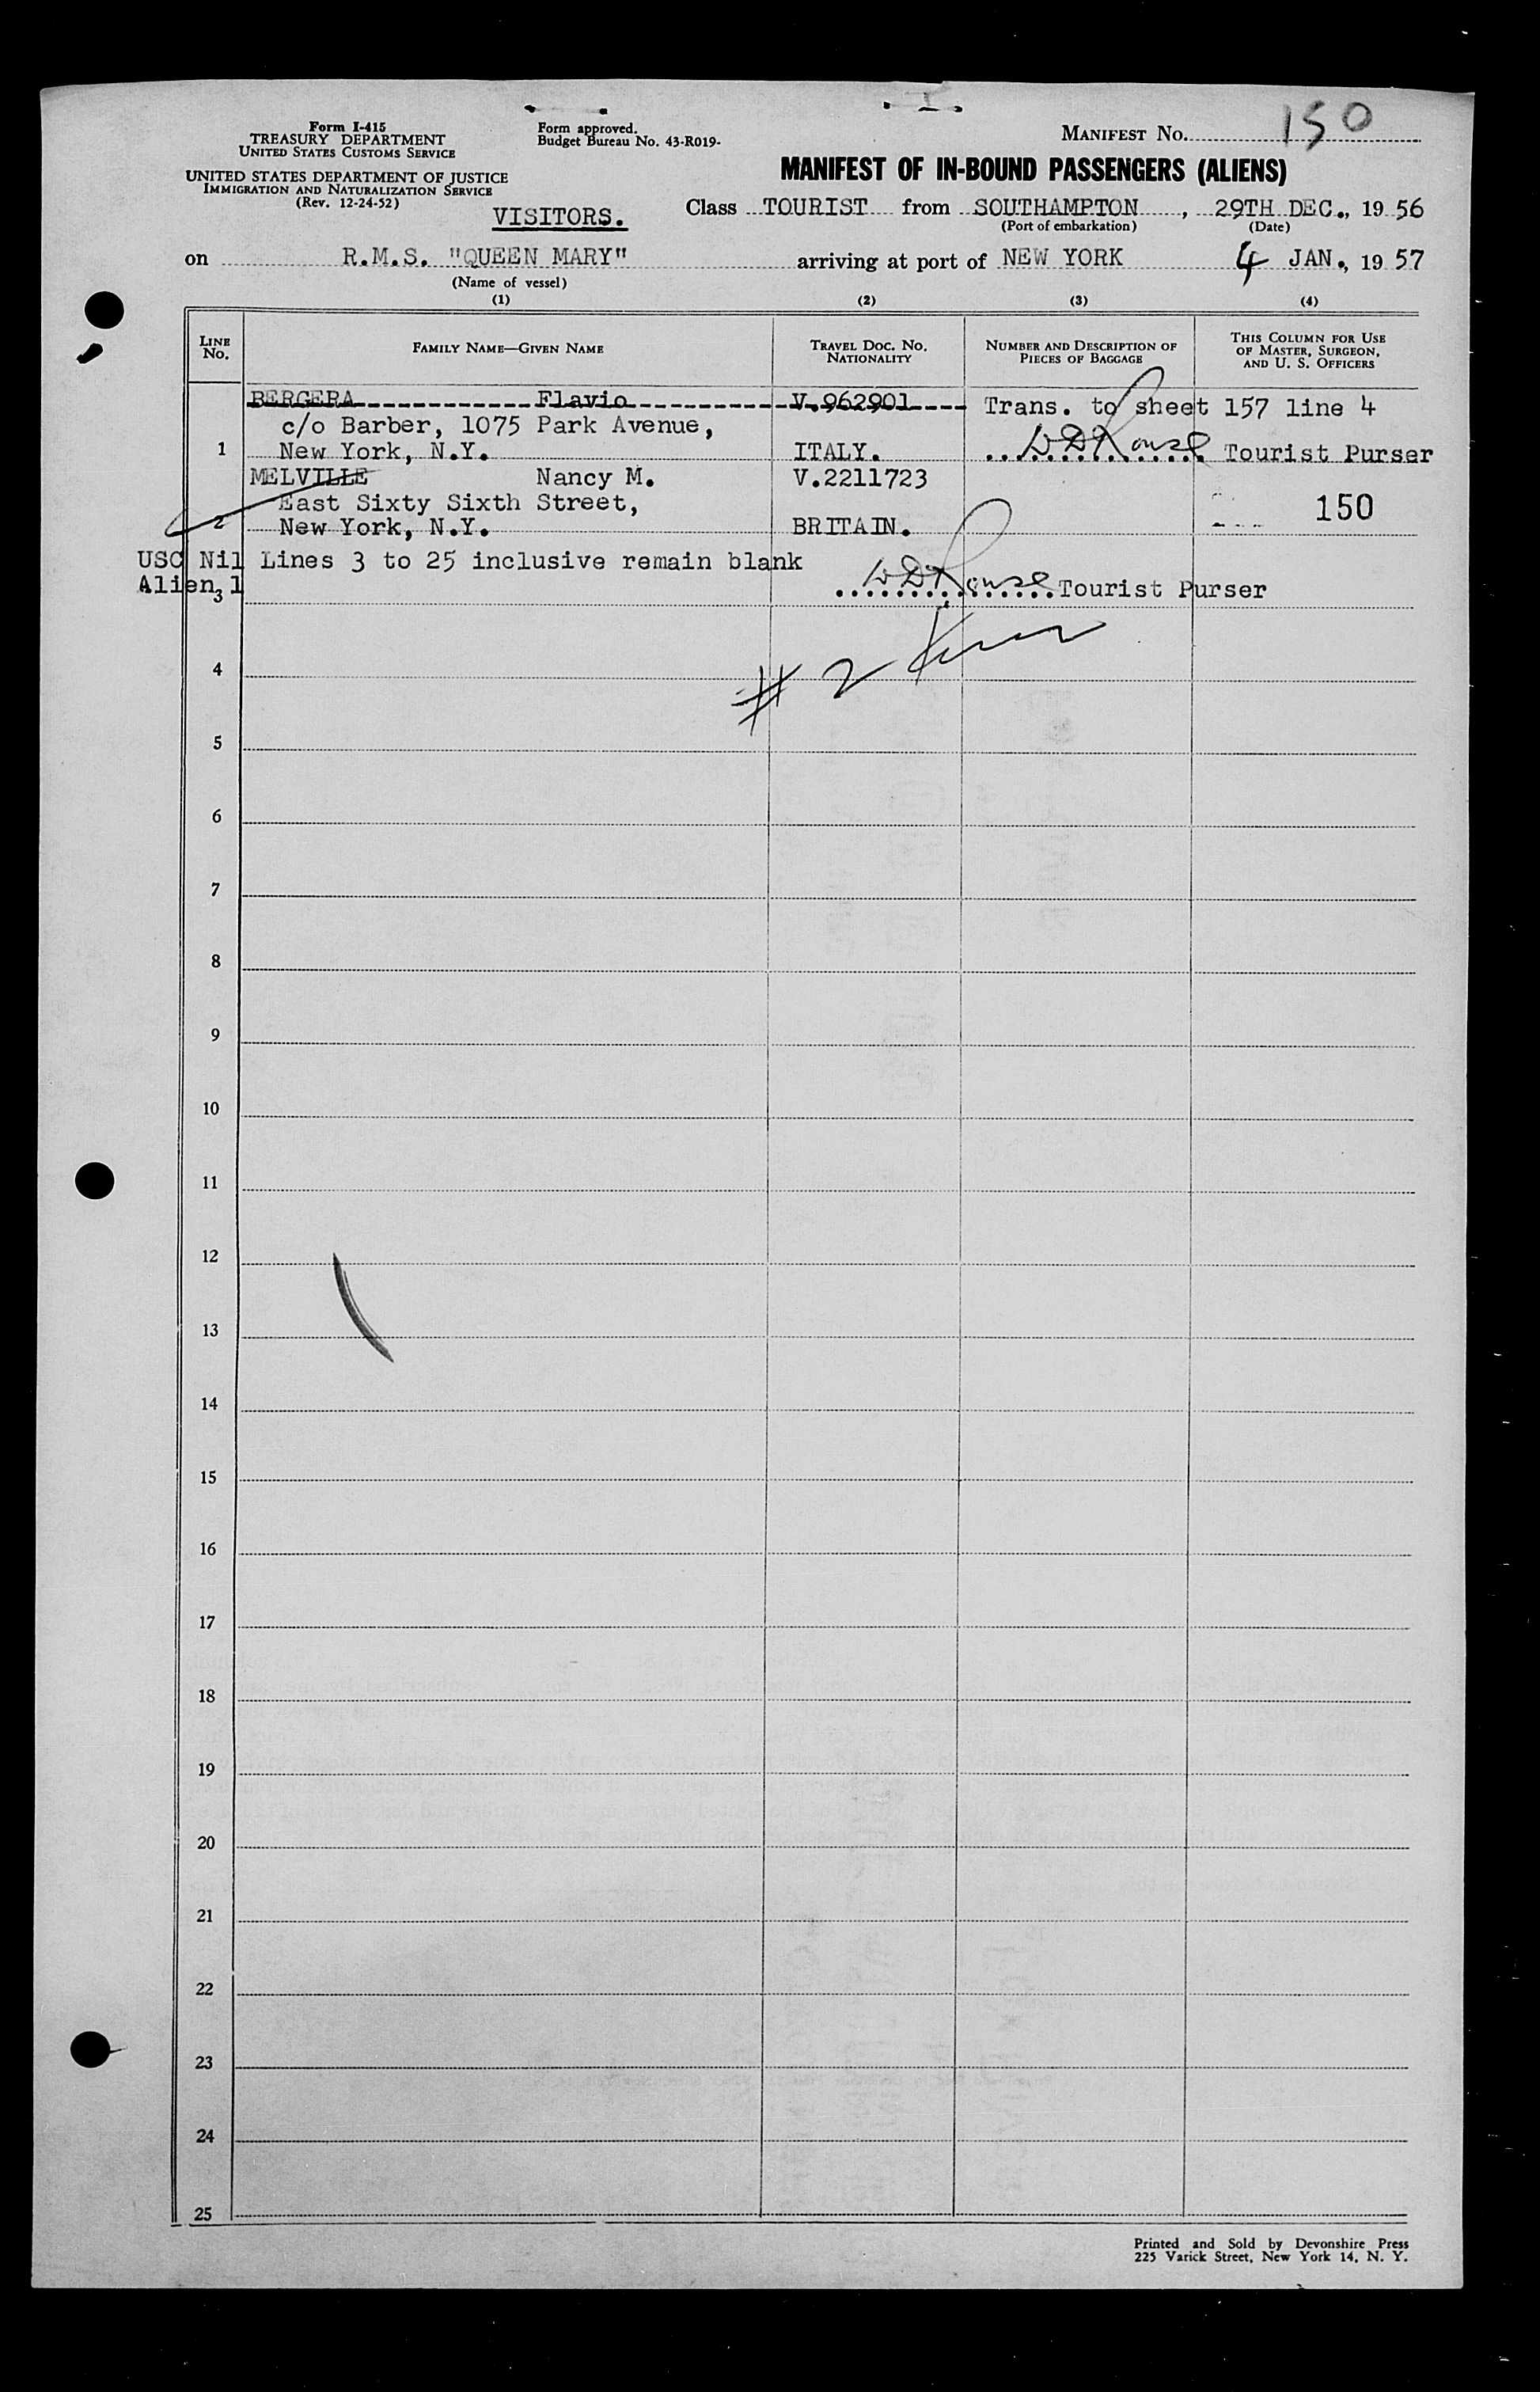 Form I-415
TREASURY DEPARTMENT
UNITED STATES CUSTOMS SERVICE
UNITED STATES DEPARTMENT OF JUSTICE
IMMIGRATION AND NATURALIZATION SERVICE
(Rev. 12-24-52)
Form approved.
Budget Bureau No. 43-R019-
MANIFEST No. 150
MANIFEST OF IN-BOUND PASSENGERS (ALIENS)
VISITORS.
Class TOURIST from SOUTHAMPTON, 29TH DEC., 19 56
(Port of embarkation) (Date)
on R.M.S. "QUEEN MARY" arriving at port of NEW YORK 4 JAN., 19 57
(Name of vessel)
(1) (2) (3) (4)
LINE No. FAMILY NAME—GIVEN NAME TRAVEL DOC. NO. NATIONALITY NUMBER AND DESCRIPTION OF PIECES OF BAGGAGE THIS COLUMN FOR USE OF MASTER, SURGEON, AND U. S. OFFICERS
BERGERA Flavio V.962901 Trans. to sheet 157 line 4
c/o Barber, 1075 Park Avenue,
1 New York, N.Y. ITALY. WD Rouse Tourist Purser
MELVILLE Nancy M. V.2211723
East Sixty Sixth Street, 150
2 New York, N.Y. BRITAIN.
USC Nil Lines 3 to 25 inclusive remain blank
Alien 1 WD Rouse Tourist Purser
3
# 2
4
5
6
7
8
9
10
11
12
13
14
15
16
17
18
19
20
21
22
23
24
25
Printed and Sold by Devonshire Press
225 Varick Street, New York 14, N. Y.